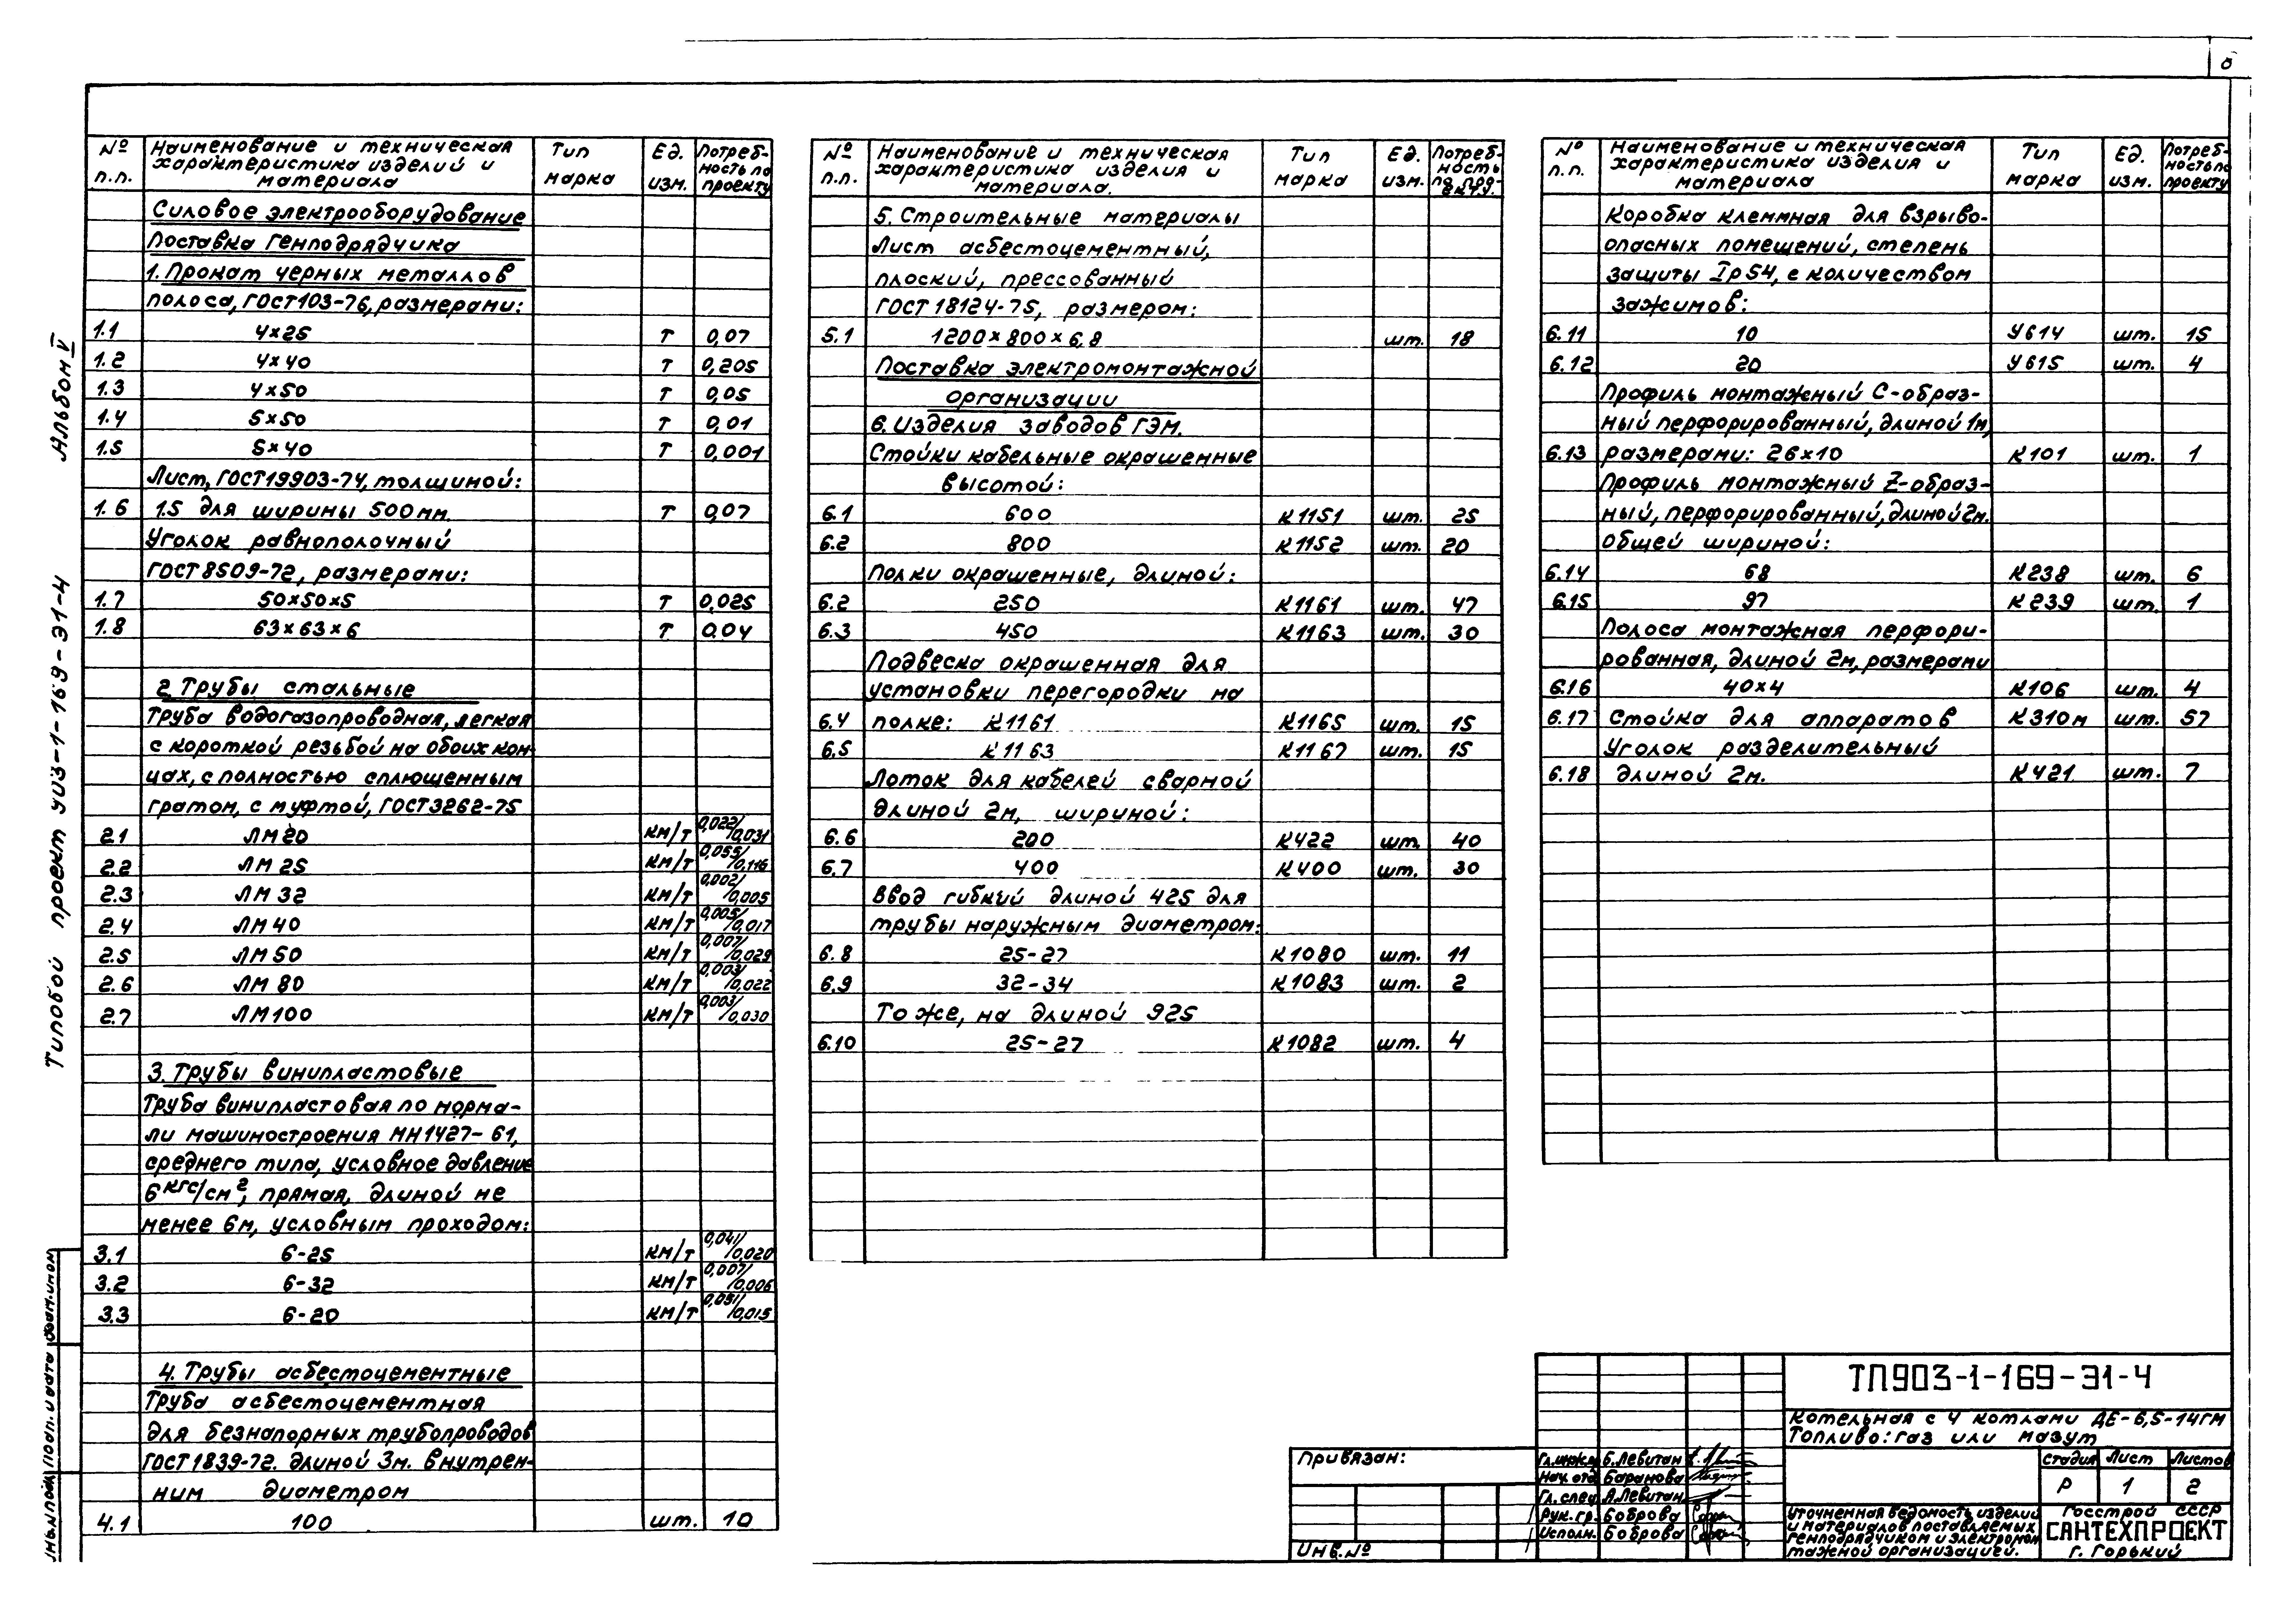 Альбом V
Типовой проект УИЗ-1-169-Э1-4
№ п.п. Наименование и техническая характеристика изделий и материала Тип марка Ед. изм. Потребность по проекту
Силовое электрооборудование
Поставка генподрядчика
1. Прокат черных металлов
полоса, ГОСТ103-76, размерами:
1.1 4×25 т 0,07
1.2 4×40 т 0,205
1.3 4×50 т 0,05
1.4 5×50 т 0,01
1.5 5×40 т 0,001
Лист, ГОСТ19903-74, толщиной:
1.6 1.5 для ширины 500мм т 0,07
Уголок равнополочный
ГОСТ8509-72, размерами:
1.7 50×50×5 т 0,025
1.8 63×63×6 т 0,04
2 Трубы стальные
Труба водогазопроводная, легкая
с короткой резьбой на обоих кон-
цах, с полностью сплющенным
гратом, с муфтой, ГОСТ3262-75
2.1 ЛМ20 км/т 0,022/0,031
2.2 ЛМ 25 км/т 0,055/0,116
2.3 ЛМ 32 км/т 0,002/0,005
2.4 ЛМ 40 км/т 0,005/0,017
2.5 ЛМ 50 км/т 0,007/0,029
2.6 ЛМ 80 км/т 0,003/0,022
2.7 ЛМ100 км/т 0,003/0,030
3. Трубы винипластовые
Труба винипластовая по норма-
ли машиностроения МН1427-61,
среднего типа, условное давление
6 кгс/см², прямая, длиной не
менее 6м, условным проходом:
3.1 6-25 км/т 0,041/0,020
3.2 6-32 км/т 0,007/0,006
3.3 6-20 км/т 0,051/0,015
4. Трубы асбестоцементные
Труба асбестоцементная
для безнапорных трубопроводов
ГОСТ1839-72. длиной 3м. внутрен-
ним диаметром
4.1 100 шт. 10
№ п.п. Наименование и техническая характеристика изделия и материала. Тип марка Ед. изм. Потребность по проекту
5. Строительные материалы
Лист асбестоцементный,
плоский, прессованный
ГОСТ 18124-75, размером:
5.1 1200×800×6,8 шт. 18
Поставка электромонтажной
организации
6. Изделия заводов ГЭМ.
Стойки кабельные окрашенные
высотой:
6.1 600 К1151 шт. 25
6.2 800 К1152 шт. 20
Полки окрашенные, длиной:
6.2 250 К1161 шт. 47
6.3 450 К1163 шт. 30
Подвеска окрашенная для
установки перегородки на
6.4 полке: К1161 К1165 шт. 15
6.5 К1163 К1167 шт. 15
Лоток для кабелей сварной
длиной 2м, шириной:
6.6 200 К422 шт. 40
6.7 400 К400 шт. 30
Ввод гибкий длиной 425 для
трубы наружным диаметром:
6.8 25-27 К1080 шт. 11
6.9 32-34 К1083 шт. 2
То же, на длиной 925
6.10 25-27 К1082 шт. 4
№ п.п. Наименование и техническая характеристика изделия и материала Тип марка Ед. изм. Потребность по проекту
Коробка клеммная для взрыво-
опасных помещений, степень
защиты Iр54, с количеством
зажимов:
6.11 10 У614 шт. 15
6.12 20 У615 шт. 4
Профиль монтажный С-образ-
ный перфорированный, длиной 1м,
6.13 размерами: 26×10 К101 шт. 1
Профиль монтажный Z-образ-
ный, перфорированный, длиной 2м.
общей шириной:
6.14 68 К238 шт. 6
6.15 97 К239 шт. 1
Полоса монтажная перфори-
рованная, длиной 2м, размерами
6.16 40×4 К106 шт. 4
6.17 Стойка для аппаратов К310м шт. 57
Уголок разделительный
6.18 длиной 2м. К421 шт. 7
ТП903-1-169-Э1-4
Котельная с 4 котлами ДЕ-6,5-14ГМ
Топливо: газ или мазут
Стадия Лист Листов
Р 1 2
Уточненная ведомость изделий
и материалов поставляемых
генподрядчиком и электромон
тажной организацией.
Госстрой СССР
САНТЕХПРОЕКТ
г. Горький
Гл.инж. Б.Левитан
Нач. отд. Баранова
Гл. спец. А.Левитан
Рук. гр. Боброва
Исполн. Боброва
Привязан:
Инв.№
Инв.№ подл. Подп. и дата Взам.инв.№